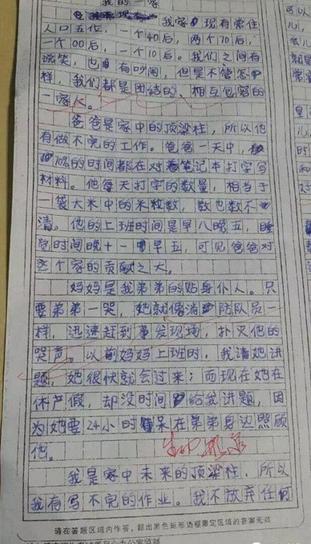 我的一家
我家现有常住
人口五位,一个40后,两个70后,
一个00后,一个10后。我们之间有
说笑,也有吵闹,但是不管怎
样,我们都是团结的、相互包容的
一家人。
爸爸是家中的顶梁柱,所以他
有做不完的工作。爸爸一天中,
的时间都在对着笔记本打字写
材料。他每天打字的数量,相当于
一袋大米中的米粒数,数也数不
清。他的上班时间是早八晚五,睡
觉时间晚十一早五,可见爸爸对
这个家的贡献之大。
妈妈是我弟弟的贴身仆人。只
要弟弟一哭,她就像消防队员一
样,迅速赶到事发现场,扑灭他的
哭声。以前妈妈上班时,我请她讲
题,她很快就会过来;而现在她在
休产假,却没时间给我讲题,因
为她要24小时呆在弟弟身边照顾
他。
生中
我是家中未来的顶梁柱,所以
我有写不完的作业。我不放弃任何
请在答题区域内作答,超出黑色矩形边框限定区域的答案无效